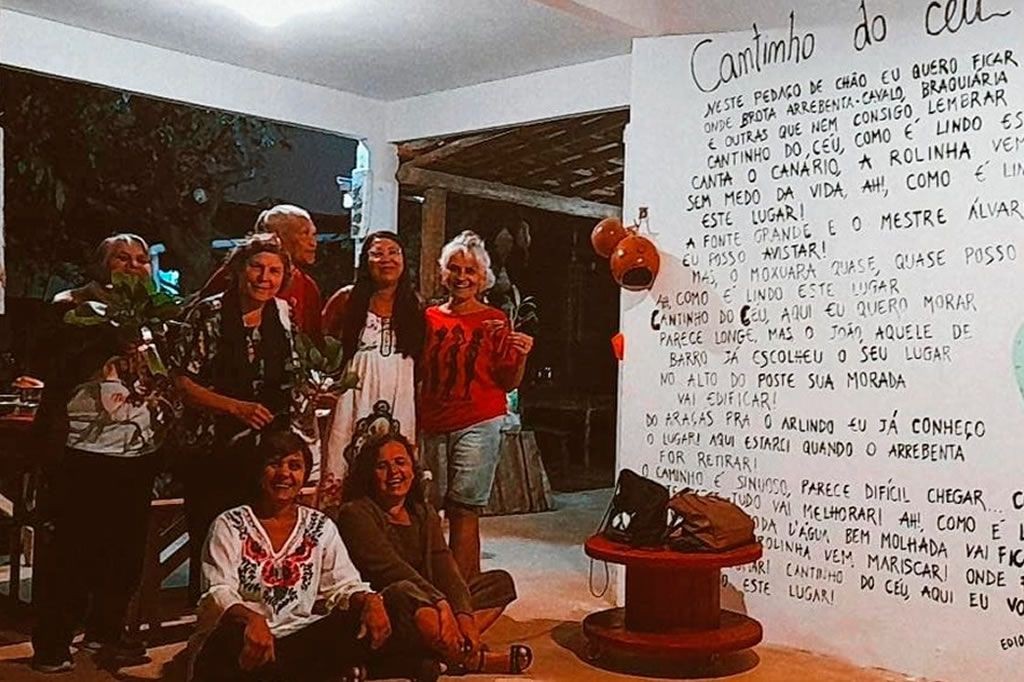 Cantinho do céu
NESTE PEDAÇO DE CHÃO EU QUERO FICAR
ONDE BROTA ARREBENTA-CAVALO, BRAQUIÁRIA
E OUTRAS QUE NEM CONSIGO LEMBRAR
CANTINHO DO CÉU, COMO É LINDO ES
CANTA O CANÁRIO, A ROLINHA VEM
SEM MEDO DA VIDA, AH!, COMO É LIN
ESTE LUGAR!
A FONTE GRANDE E O MESTRE ÁLVAR
EU POSSO AVISTAR!
MAS, O MOXUARA QUASE, QUASE POSSO
AH, COMO É LINDO ESTE LUGAR
CANTINHO DO CÉU, AQUI EU QUERO MORAR
PARECE LONGE, MAS O JOÃO, AQUELE DE
BARRO JÁ ESCOLHEU O SEU LUGAR
NO ALTO DO POSTE SUA MORADA
VAI EDIFICAR!
DO ARAÇAS PRA O ARLINDO EU JÁ CONHEÇO
O LUGAR! AQUI ESTAREI QUANDO O ARREBENTA
FOR RETIRAR!
O CAMINHO É SINUOSO, PARECE DIFÍCIL CHEGAR... C
TUDO VAI MELHORAR! AH!, COMO É L
L'ÁGUA, BEM MOLHADA VAI FIC
ROLINHA VEM, MARISCAR! ONDE
CANTINHO DO CÉU, AQUI EU VO
ESTE LUGAR!
EDIO